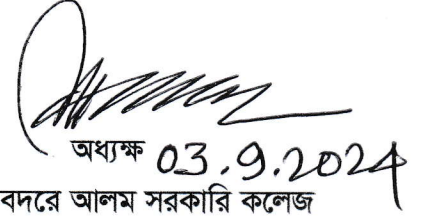 অধ্যক্ষ 03.9.2024
বদরে আলম সরকারি কলেজ